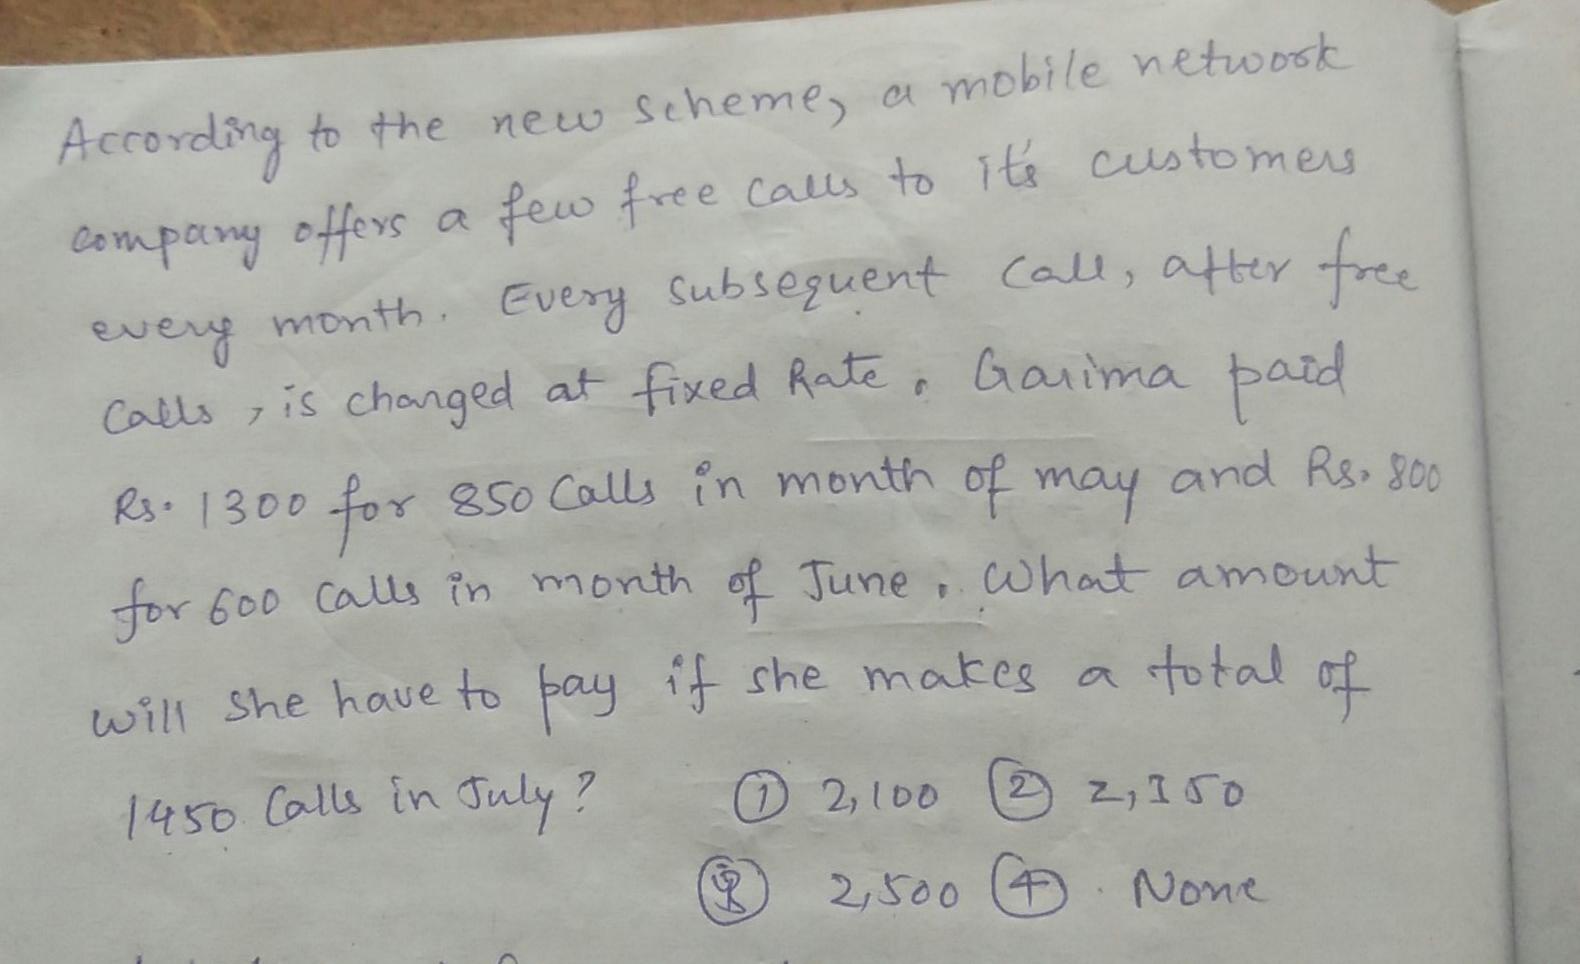 According to the new scheme, a mobile network
company offers a few free calls to it's customers
every month. Every subsequent call, after free
Calls, is changed at fixed Rate. Garima paid
Rs. 1300 for 850 Calls in month of may and Rs. 800
for 600 Calls in month of June. What amount
will she have to pay if she makes a total of
1450 Calls in July? ① 2,100 ② 2,350
③ 2,500 ④ None